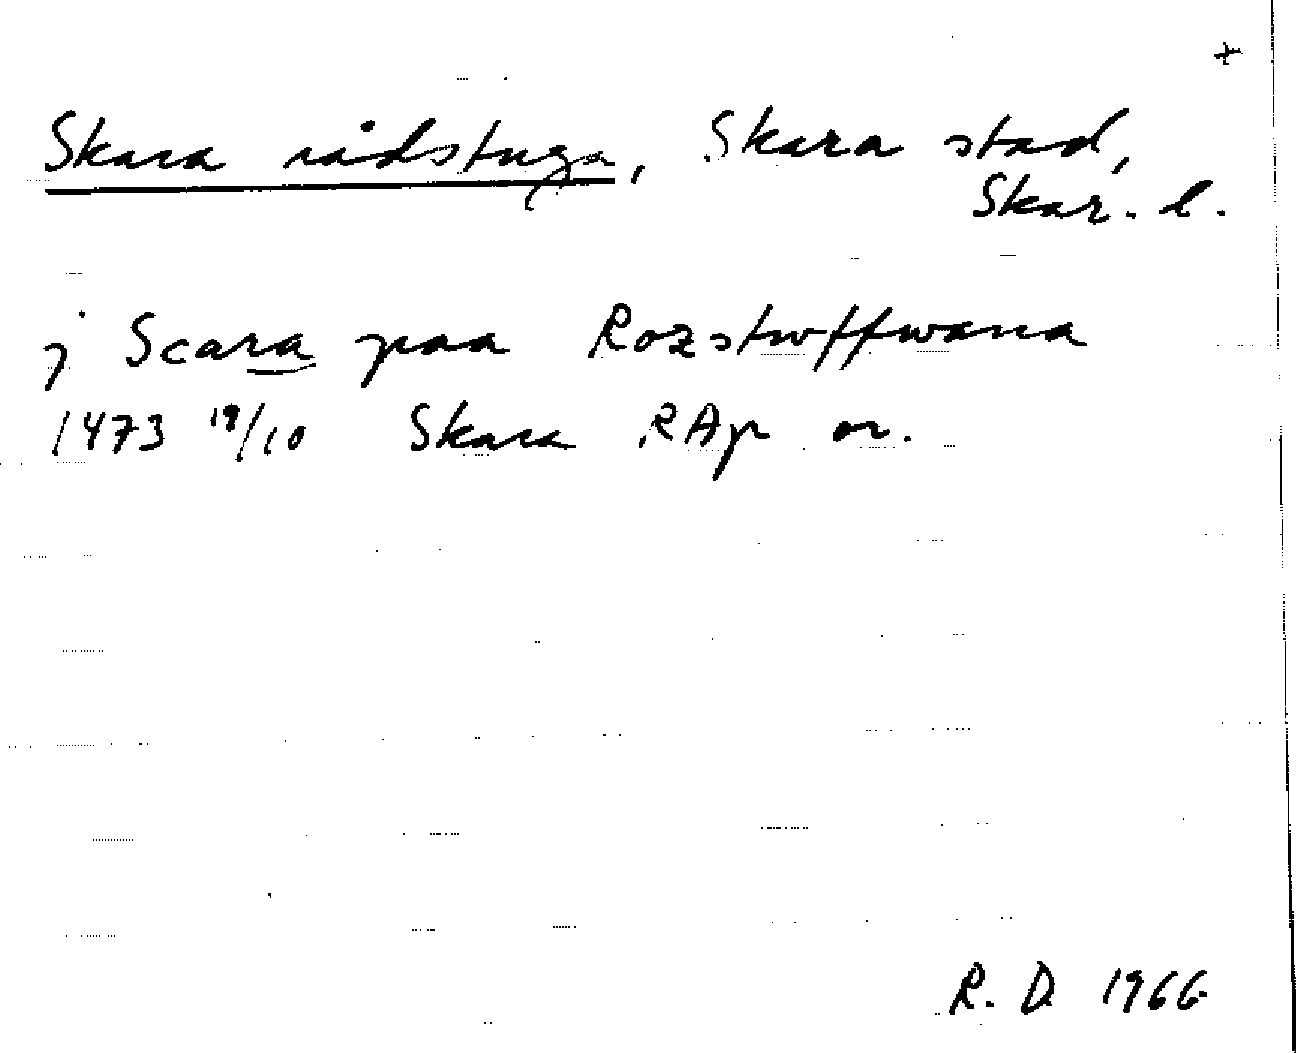 +
Skara rådstuga, Skara stad,
Skar. l.
j Scara paa Rozstwffwana
1473 19/10 Skara RAp or.
R. D. 1966